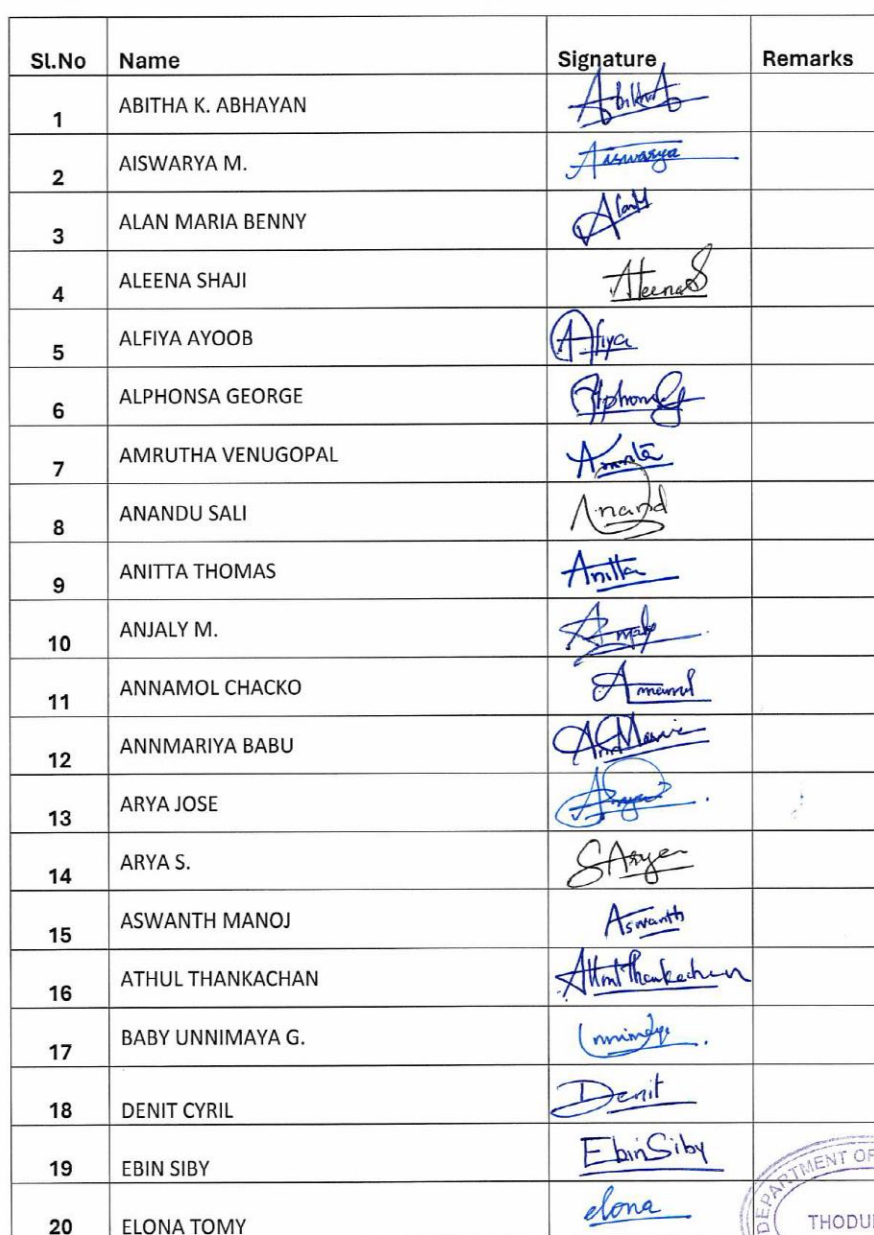 Sl.No Name Signature Remarks
1 ABITHA K. ABHAYAN
2 AISWARYA M. Aiswarya
3 ALAN MARIA BENNY
4 ALEENA SHAJI AleenaS
5 ALFIYA AYOOB Alfiya
6 ALPHONSA GEORGE
7 AMRUTHA VENUGOPAL
8 ANANDU SALI Anand
9 ANITTA THOMAS Anitta
10 ANJALY M.
11 ANNAMOL CHACKO
12 ANNMARIYA BABU
13 ARYA JOSE
14 ARYA S. SArya
15 ASWANTH MANOJ Aswanth
16 ATHUL THANKACHAN
17 BABY UNNIMAYA G.
18 DENIT CYRIL Denit
19 EBIN SIBY Ebin Siby
20 ELONA TOMY elona
DEPARTMENT OF
THODU